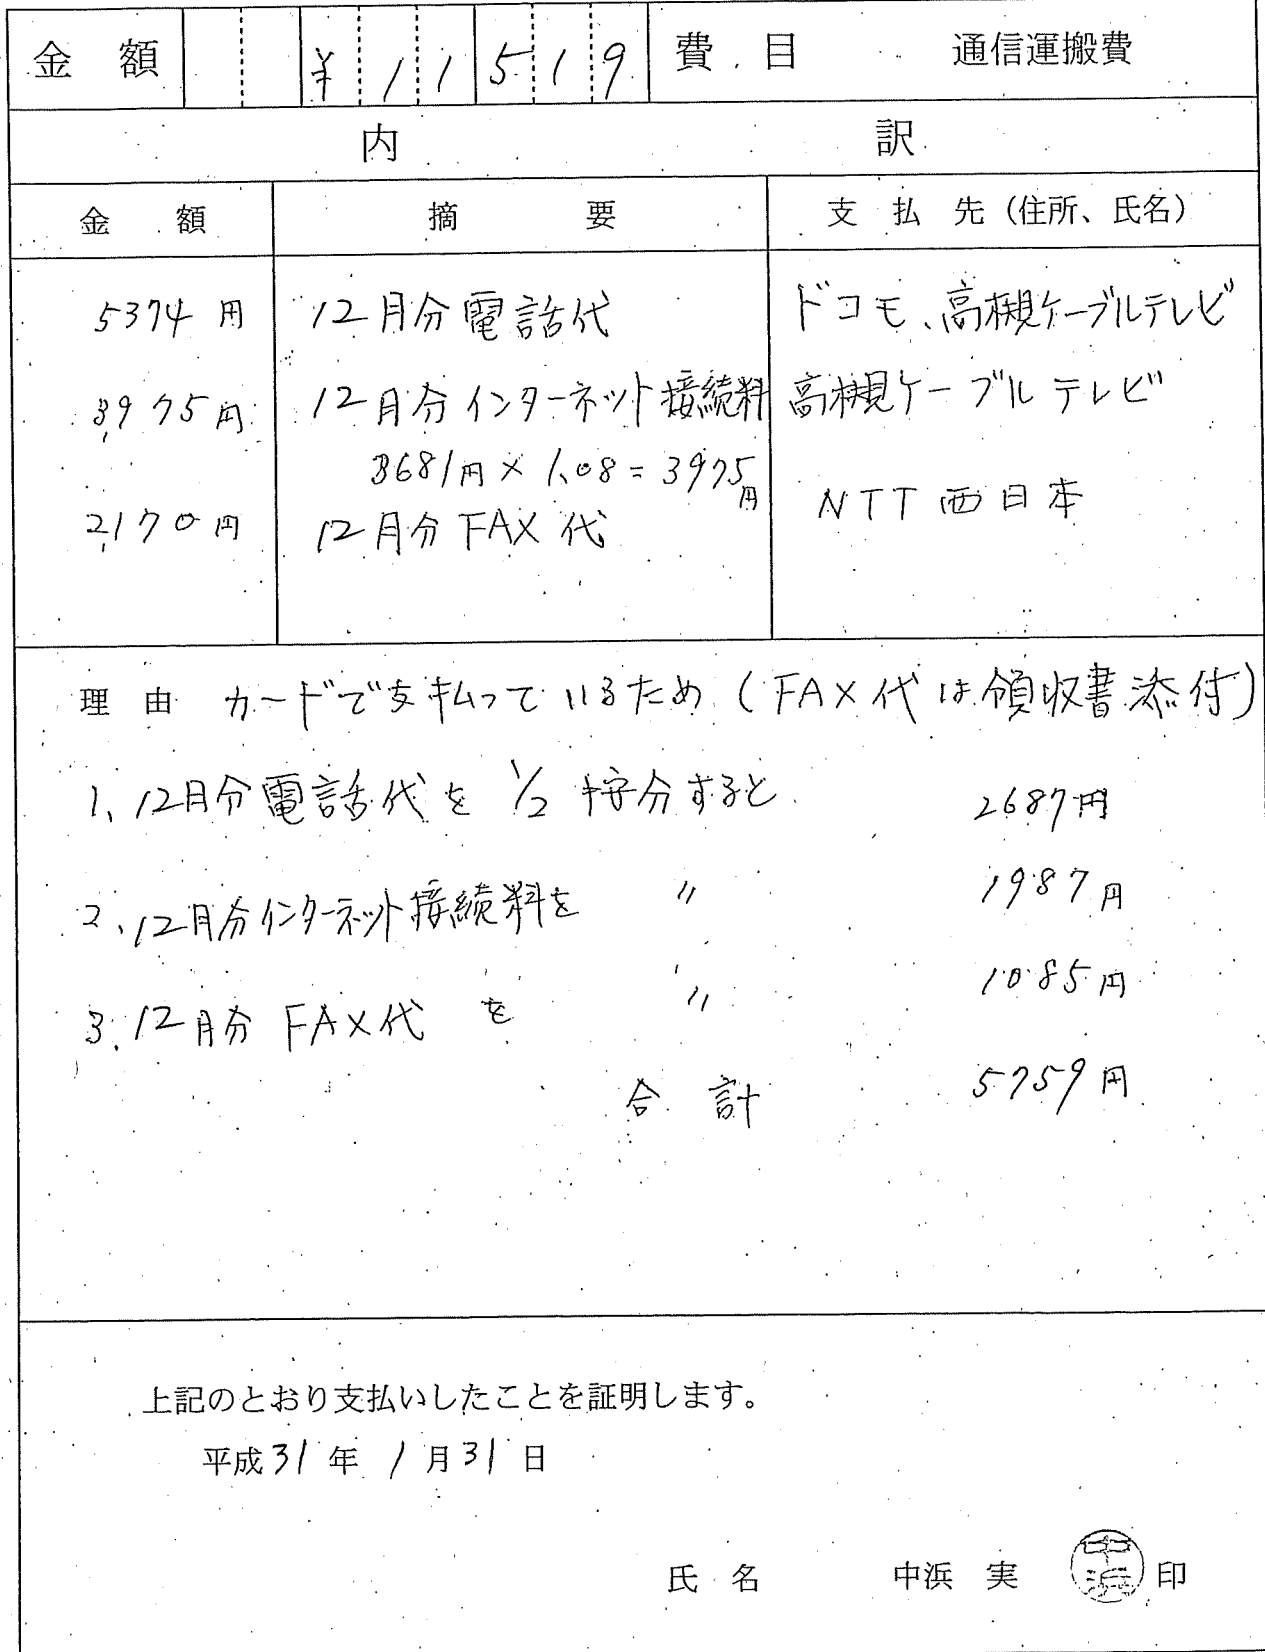 金額 ¥11519 費目 通信運搬費
内訳
金額 摘要 支払先（住所、氏名）
5374円 12月分電話代 ドコモ、高槻ケーブルテレビ
3,975円 12月分インターネット接続料 高槻ケーブルテレビ
3681円×1.08=3975円
2,170円 12月分FAX代 NTT西日本
理由 カードで支払っているため（FAX代は領収書添付）
1、12月分電話代を1/2按分すると 2687円
2、12月分インターネット接続料を 〃 1987円
3、12月分FAX代を 〃 1085円
合計 5759円
上記のとおり支払いしたことを証明します。
平成31年1月31日
氏名 中浜 実 中浜 印